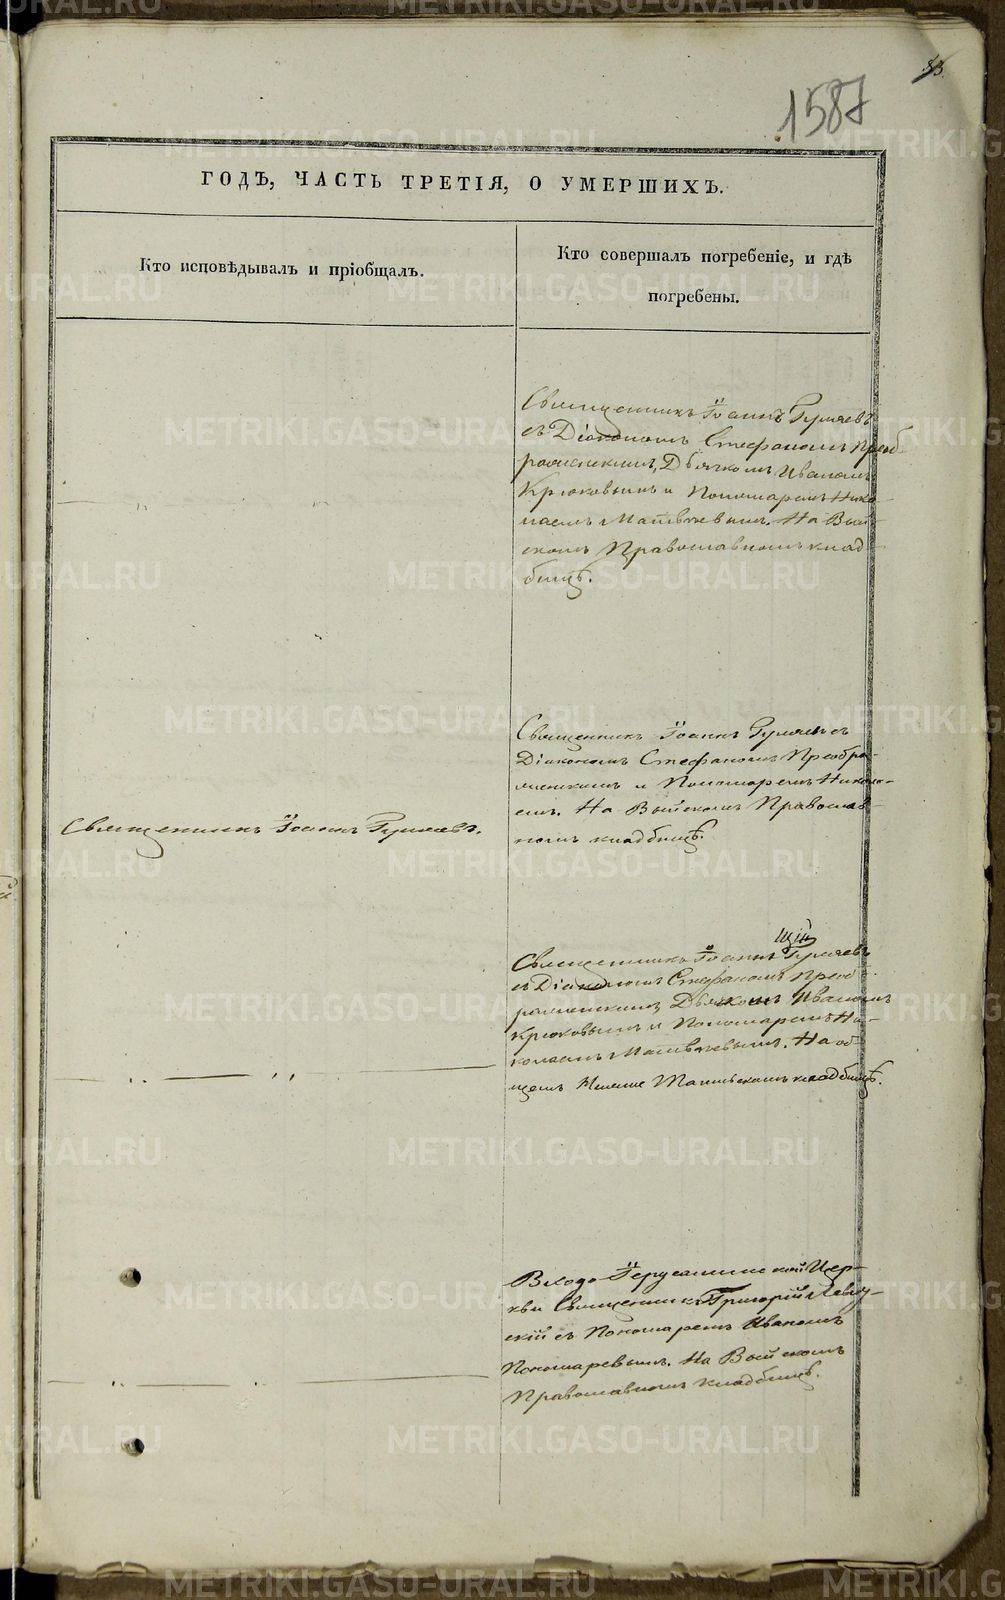 83.
1587
ГОДЪ, ЧАСТЬ ТРЕТІЯ, О УМЕРШИХЪ.
Кто исповѣдывалъ и пріобщалъ.
Кто совершалъ погребеніе, и гдѣ
погребены.
Священникъ Іоаннъ Гуляевъ
съ Діакономъ Стефаномъ Преоб-
раженскимъ, Дьячкомъ Иваномъ
Крюковымъ и Пономаремъ Нико-
лаемъ Матвѣевымъ. На Вый-
скомъ Православномъ клад-
бищѣ.
Священникъ Іоаннъ Гуляевъ съ
Діакономъ Стефаномъ Преобра-
женскимъ и Пономаремъ Никола-
емъ. На Выйскомъ Православ-
номъ кладбищѣ.
Священникъ Іоаннъ Гуляевъ.
Священникъ Іоаннъ Гуляевъ
съ Діакономъ Стефаномъ Преоб-
раженскимъ, Дьячкомъ Иваномъ
Крюковымъ и Пономаремъ Ни-
колаемъ Матвѣевымъ. На об-
щемъ Нижне Тагильскомъ кладбищѣ.
Входо Іерусалимской Цер-
кви Священникъ Григорій
скій съ Пономаремъ Иваномъ
Пономаревымъ. На Выйскомъ
Православномъ Кладбищѣ.
METRIKI.GASO-URAL.RU